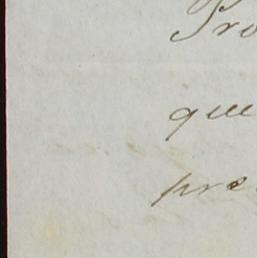 Pro
que
pre